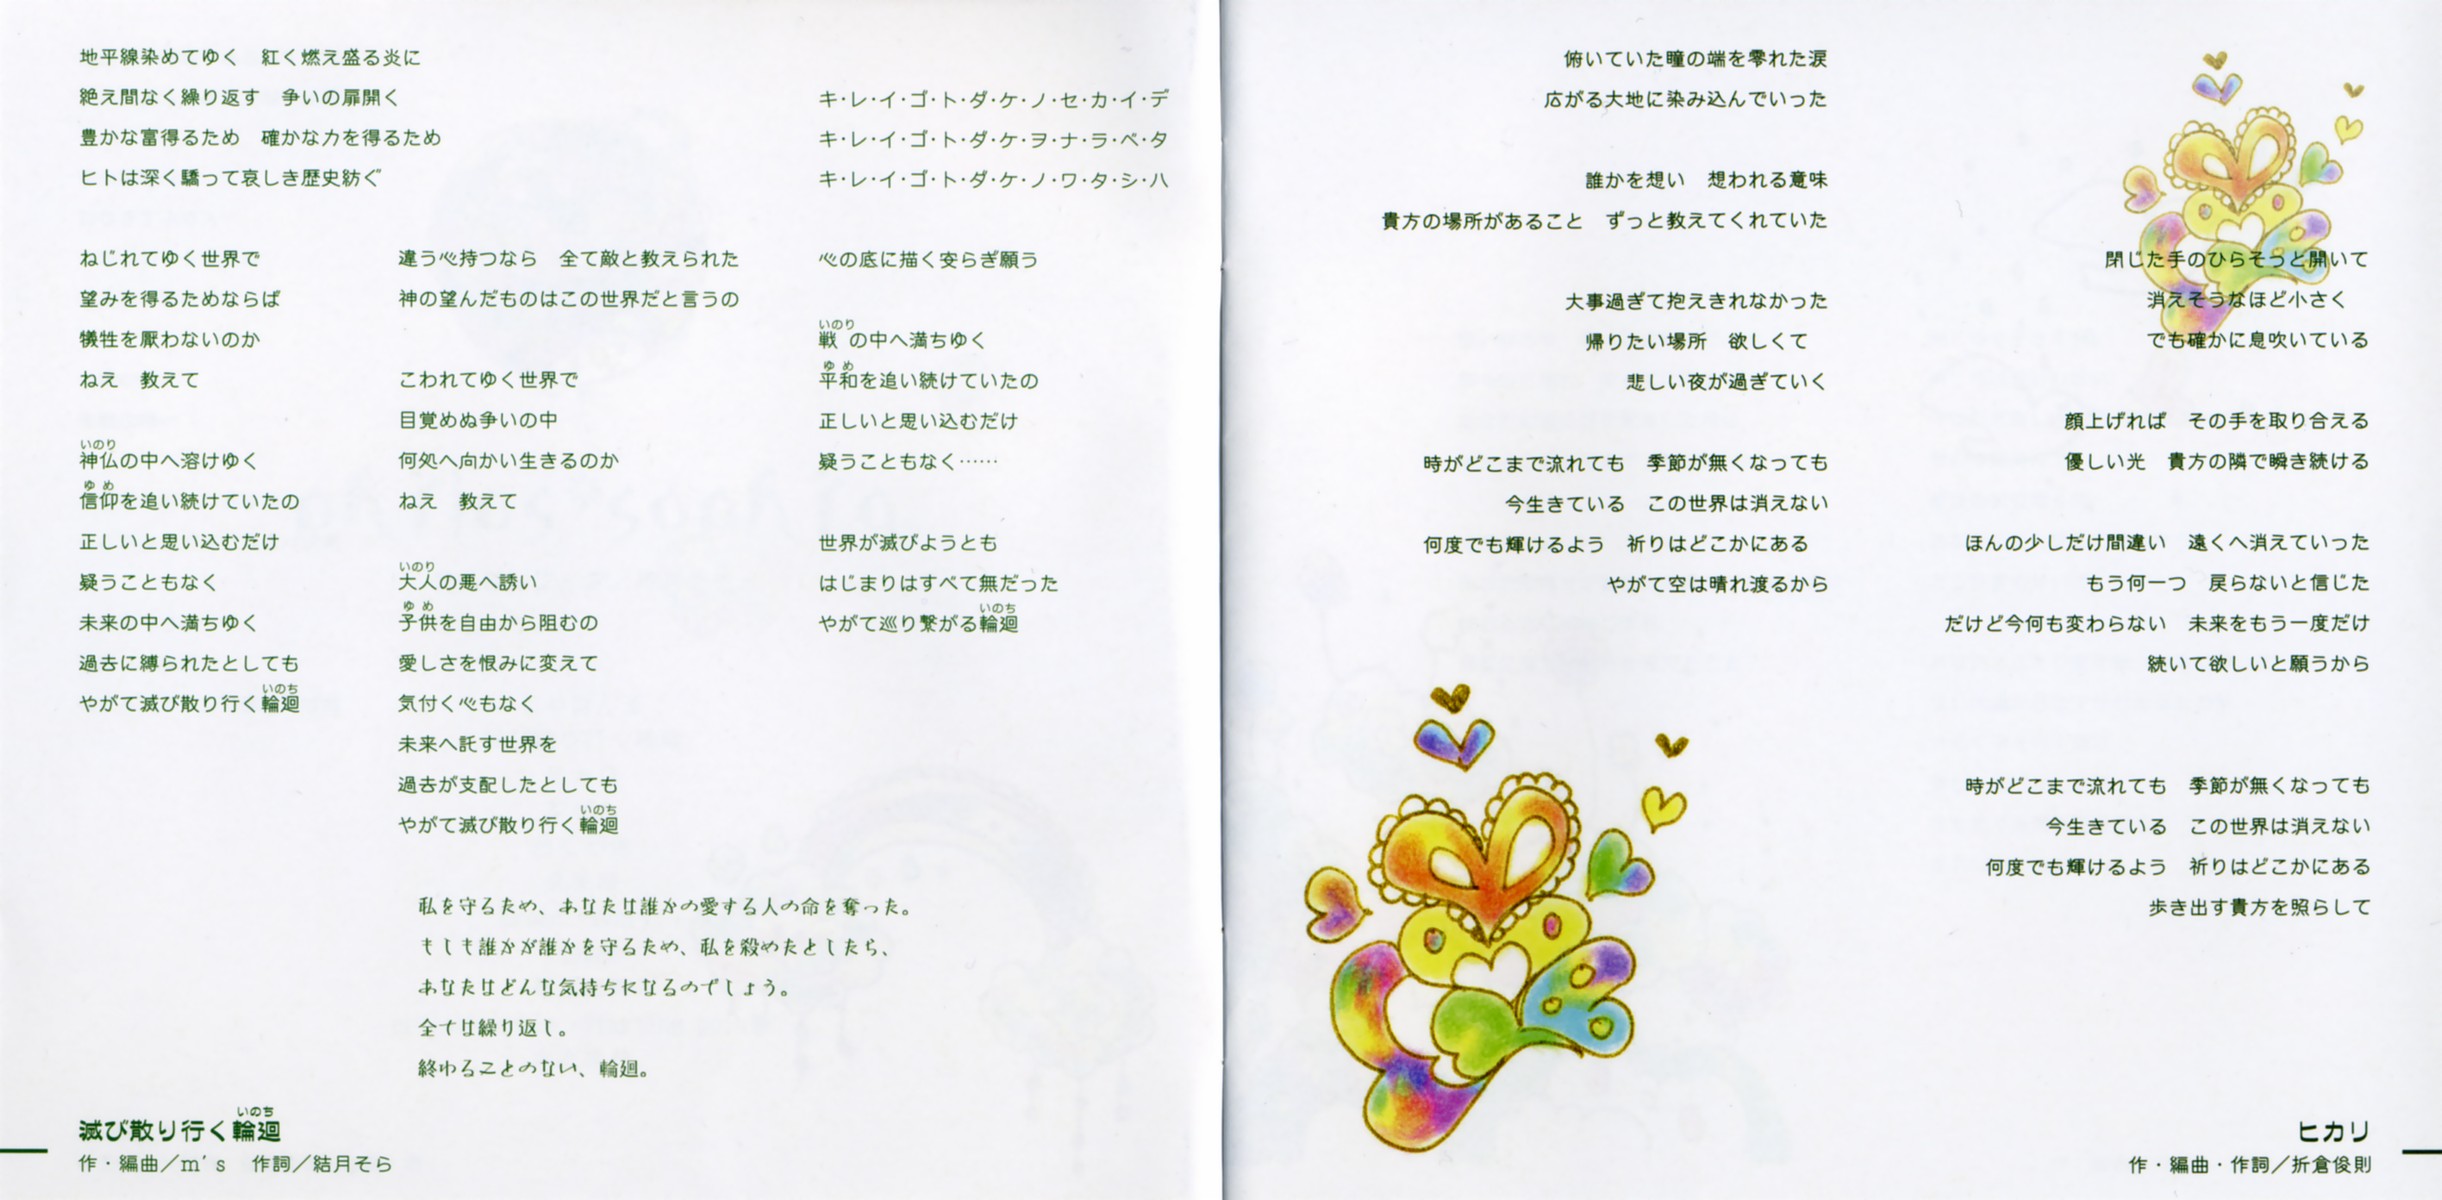 地平線染めてゆく　紅く燃え盛る炎に
絶え間なく繰り返す　争いの扉開く
豊かな富得るため　確かな力を得るため
ヒトは深く驕って哀しき歴史紡ぐ
ねじれてゆく世界で
望みを得るためならば
犠牲を厭わないのか
ねえ　教えて
いのり
神仏の中へ溶けゆく
ゆめ
信仰を追い続けていたの
正しいと思い込むだけ
疑うこともなく
未来の中へ満ちゆく
過去に縛られたとしても
いのち
やがて滅び散り行く輪廻
違う心持つなら　全て敵と教えられた
神の望んだものはこの世界だと言うの
こわれてゆく世界で
目覚めぬ争いの中
何処へ向かい生きるのか
ねえ　教えて
いのり
大人の悪へ誘い
ゆめ
子供を自由から阻むの
愛しさを恨みに変えて
気付く心もなく
未来へ託す世界を
過去が支配したとしても
いのち
やがて滅び散り行く輪廻
キ・レ・イ・ゴ・ト・ダ・ケ・ノ・セ・カ・イ・デ
キ・レ・イ・ゴ・ト・ダ・ケ・ヲ・ナ・ラ・ベ・タ
キ・レ・イ・ゴ・ト・ダ・ケ・ノ・ワ・タ・シ・ハ
心の底に描く安らぎ願う
いのり
戦の中へ満ちゆく
ゆめ
平和を追い続けていたの
正しいと思い込むだけ
疑うこともなく……
世界が滅びようとも
はじまりはすべて無だった
いのち
やがて巡り繋がる輪廻
私を守るため、あなたは誰かの愛する人の命を奪った。
もしも誰かが誰かを守るため、私を殺めたとしたら、
あなたはどんな気持ちになるのでしょう。
全ては繰り返し。
終わることのない、輪廻。
いのち
滅び散り行く輪廻
作・編曲／m's　作詞／結月そら
俯いていた瞳の端を零れた涙
広がる大地に染み込んでいった
誰かを想い　想われる意味
貴方の場所があること　ずっと教えてくれていた
大事過ぎて抱えきれなかった
帰りたい場所　欲しくて
悲しい夜が過ぎていく
時がどこまで流れても　季節が無くなっても
今生きている　この世界は消えない
何度でも輝けるよう　祈りはどこかにある
やがて空は晴れ渡るから
閉じた手のひらそっと開いて
消えそうなほど小さく
でも確かに息吹いている
顔上げれば　その手を取り合える
優しい光　貴方の隣で瞬き続ける
ほんの少しだけ間違い　遠くへ消えていった
もう何一つ　戻らないと信じた
だけど今何も変わらない　未来をもう一度だけ
続いて欲しいと願うから
時がどこまで流れても　季節が無くなっても
今生きている　この世界は消えない
何度でも輝けるよう　祈りはどこかにある
歩き出す貴方を照らして
ヒカリ
作・編曲・作詞／折倉俊則